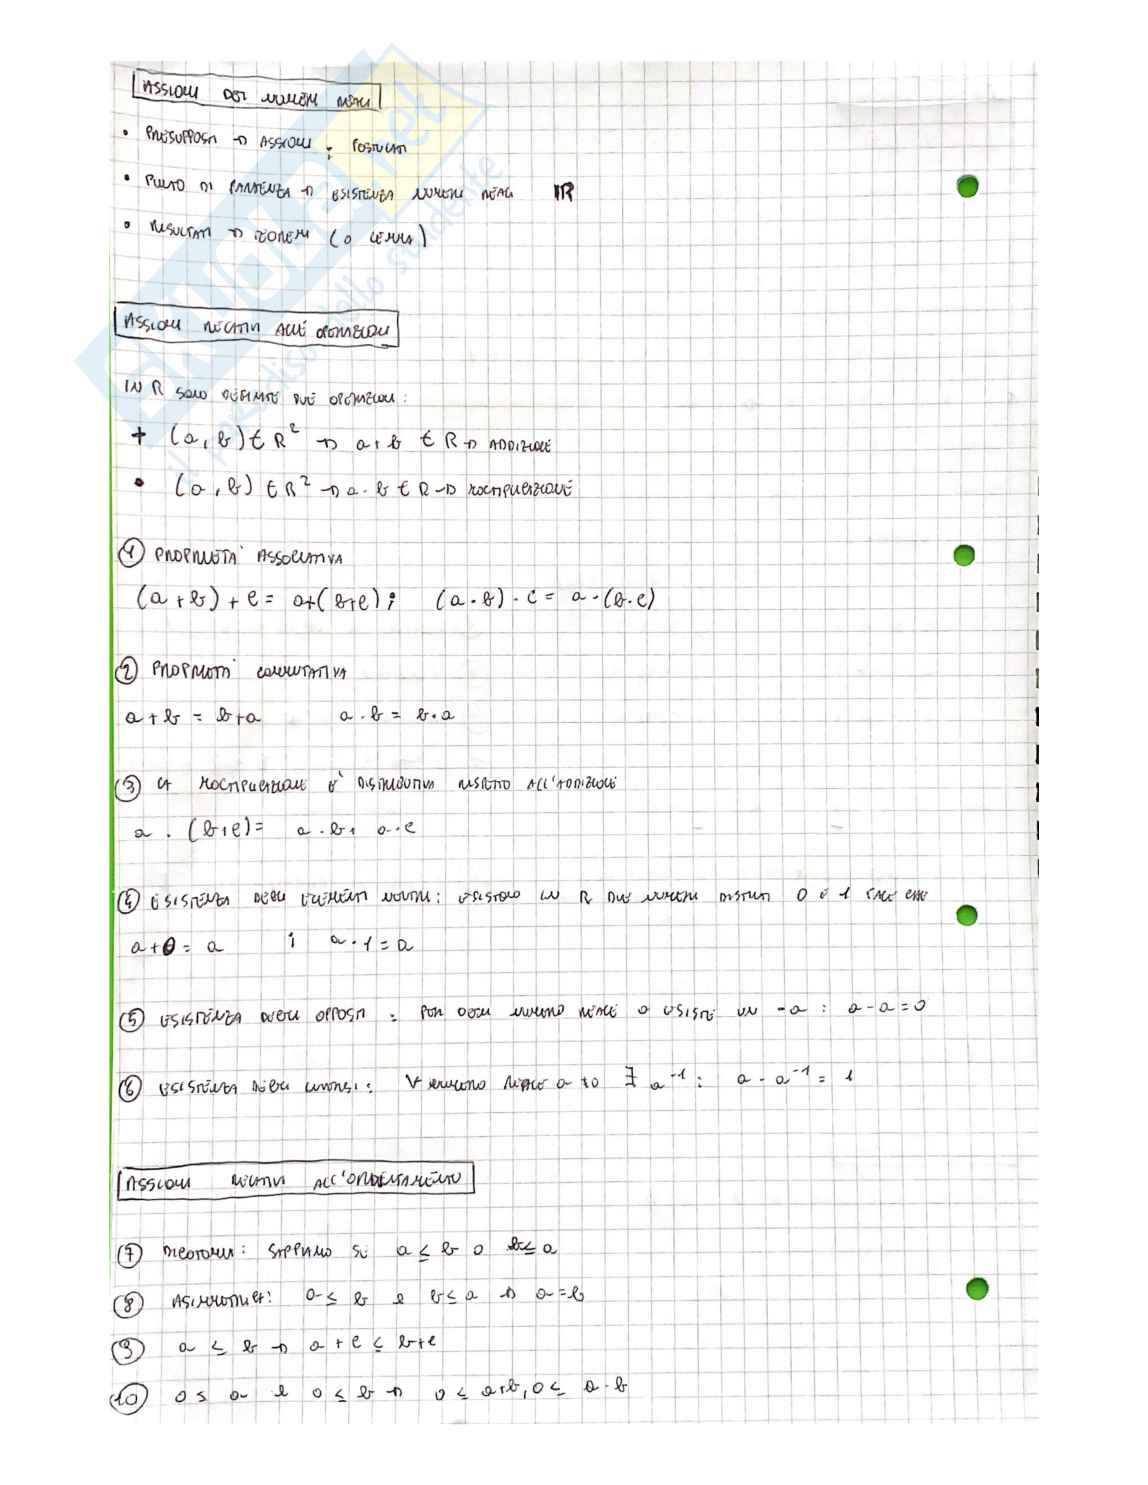 ASSIOMI DEI NUMERI REALI
• PRESUPPOSTI → ASSIOMI ; POSTULATI
• PUNTO DI PARTENZA → ESISTENZA NUMERI REALI ℝ
• RISULTATI → TEOREMI (O LEMMA)
ASSIOMI RELATIVI ALLE OPERAZIONI
IN R SONO DEFINITE DUE OPERAZIONI :
+ (a, b) ∈ R² → a+b ∈ R → ADDIZIONE
• (a, b) ∈ R² → a · b ∈ R → MOLTIPLICAZIONE
① PROPRIETA' ASSOCIATIVA
(a + b) + c = a+(b+c) ; (a · b) · c = a · (b · c)
② PROPRIETA' COMMUTATIVA
a + b = b+a a · b = b · a
③ LA MOLTIPLICAZIONE E' DISTRIBUTIVA RISPETTO ALL'ADDIZIONE
a · (b+c) = a · b + a · c
④ ESISTENZA DEGLI ELEMENTI NEUTRI : ESISTONO IN R DUE NUMERI DISTINTI 0 E 1 TALI CHE
a+0 = a ; a · 1 = a
⑤ ESISTENZA DEGLI OPPOSTI : PER OGNI NUMERO REALE a ESISTE UN -a : a - a = 0
⑥ ESISTENZA DEGLI INVERSI : ∀ NUMERO REALE a ≠ 0 ∃ a⁻¹ : a · a⁻¹ = 1
ASSIOMI RELATIVI ALL'ORDINAMENTO
⑦ DICOTOMIA : SAPPIAMO SE a ≤ b o b ≤ a
⑧ ASIMMETRIA : a ≤ b e b ≤ a → a = b
⑨ a ≤ b → a + c ≤ b+c
⑩ 0 ≤ a e 0 ≤ b → 0 ≤ a+b, 0 ≤ a · b